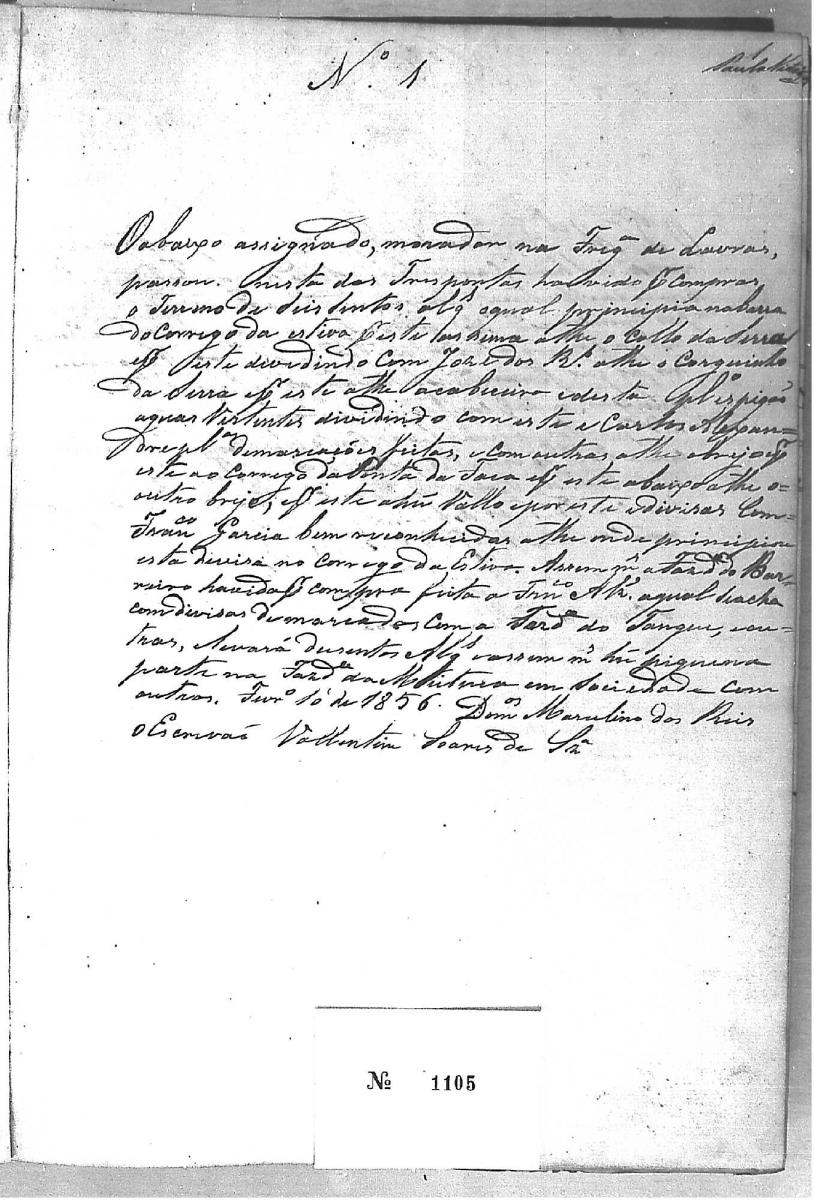 Nº 1
Paula
O abaxo assignado, morador na Fregª de Lavras,
passou. nesta das Trespontas havido p compras
o Terreno de Seis sentos alqs aqual principia nabarra
do Corrego da estiva p este assima athe o Collo da Serra
e p este dividindo Com Joze dos Rs athe o
da Serra e p este athe acabiceira edesta plo espigaõ
aguas Vertentes dividindo com este e Carlos Alexan-
dre plas demarcações feitas, e com outras athe obrejo e p
este ao Corrego da Ponta da Faca e p este abaxo athe o-
outro brejo, e p este ahũ Vallo epor este e divisas Com
Francº Garcia bem reconhecidas athe onde principiou
esta devisa no corrego da Estiva. Assem mº a Fazdª do Bar-
reiro havida p compra feita a Frncº Alz. aqual seacha
com divisas demarcadas Com a Fazdª do Tanque, eou-
tras, elevará dusentos Alqs eassem mº hũ piquena
parte na Fazdª da em Sociedade com
outros. Fevrº 16 de 1856. Domos Marcelino dos Reis
o Escrivaõ Vallentim Soares de Szª
Nº 1105